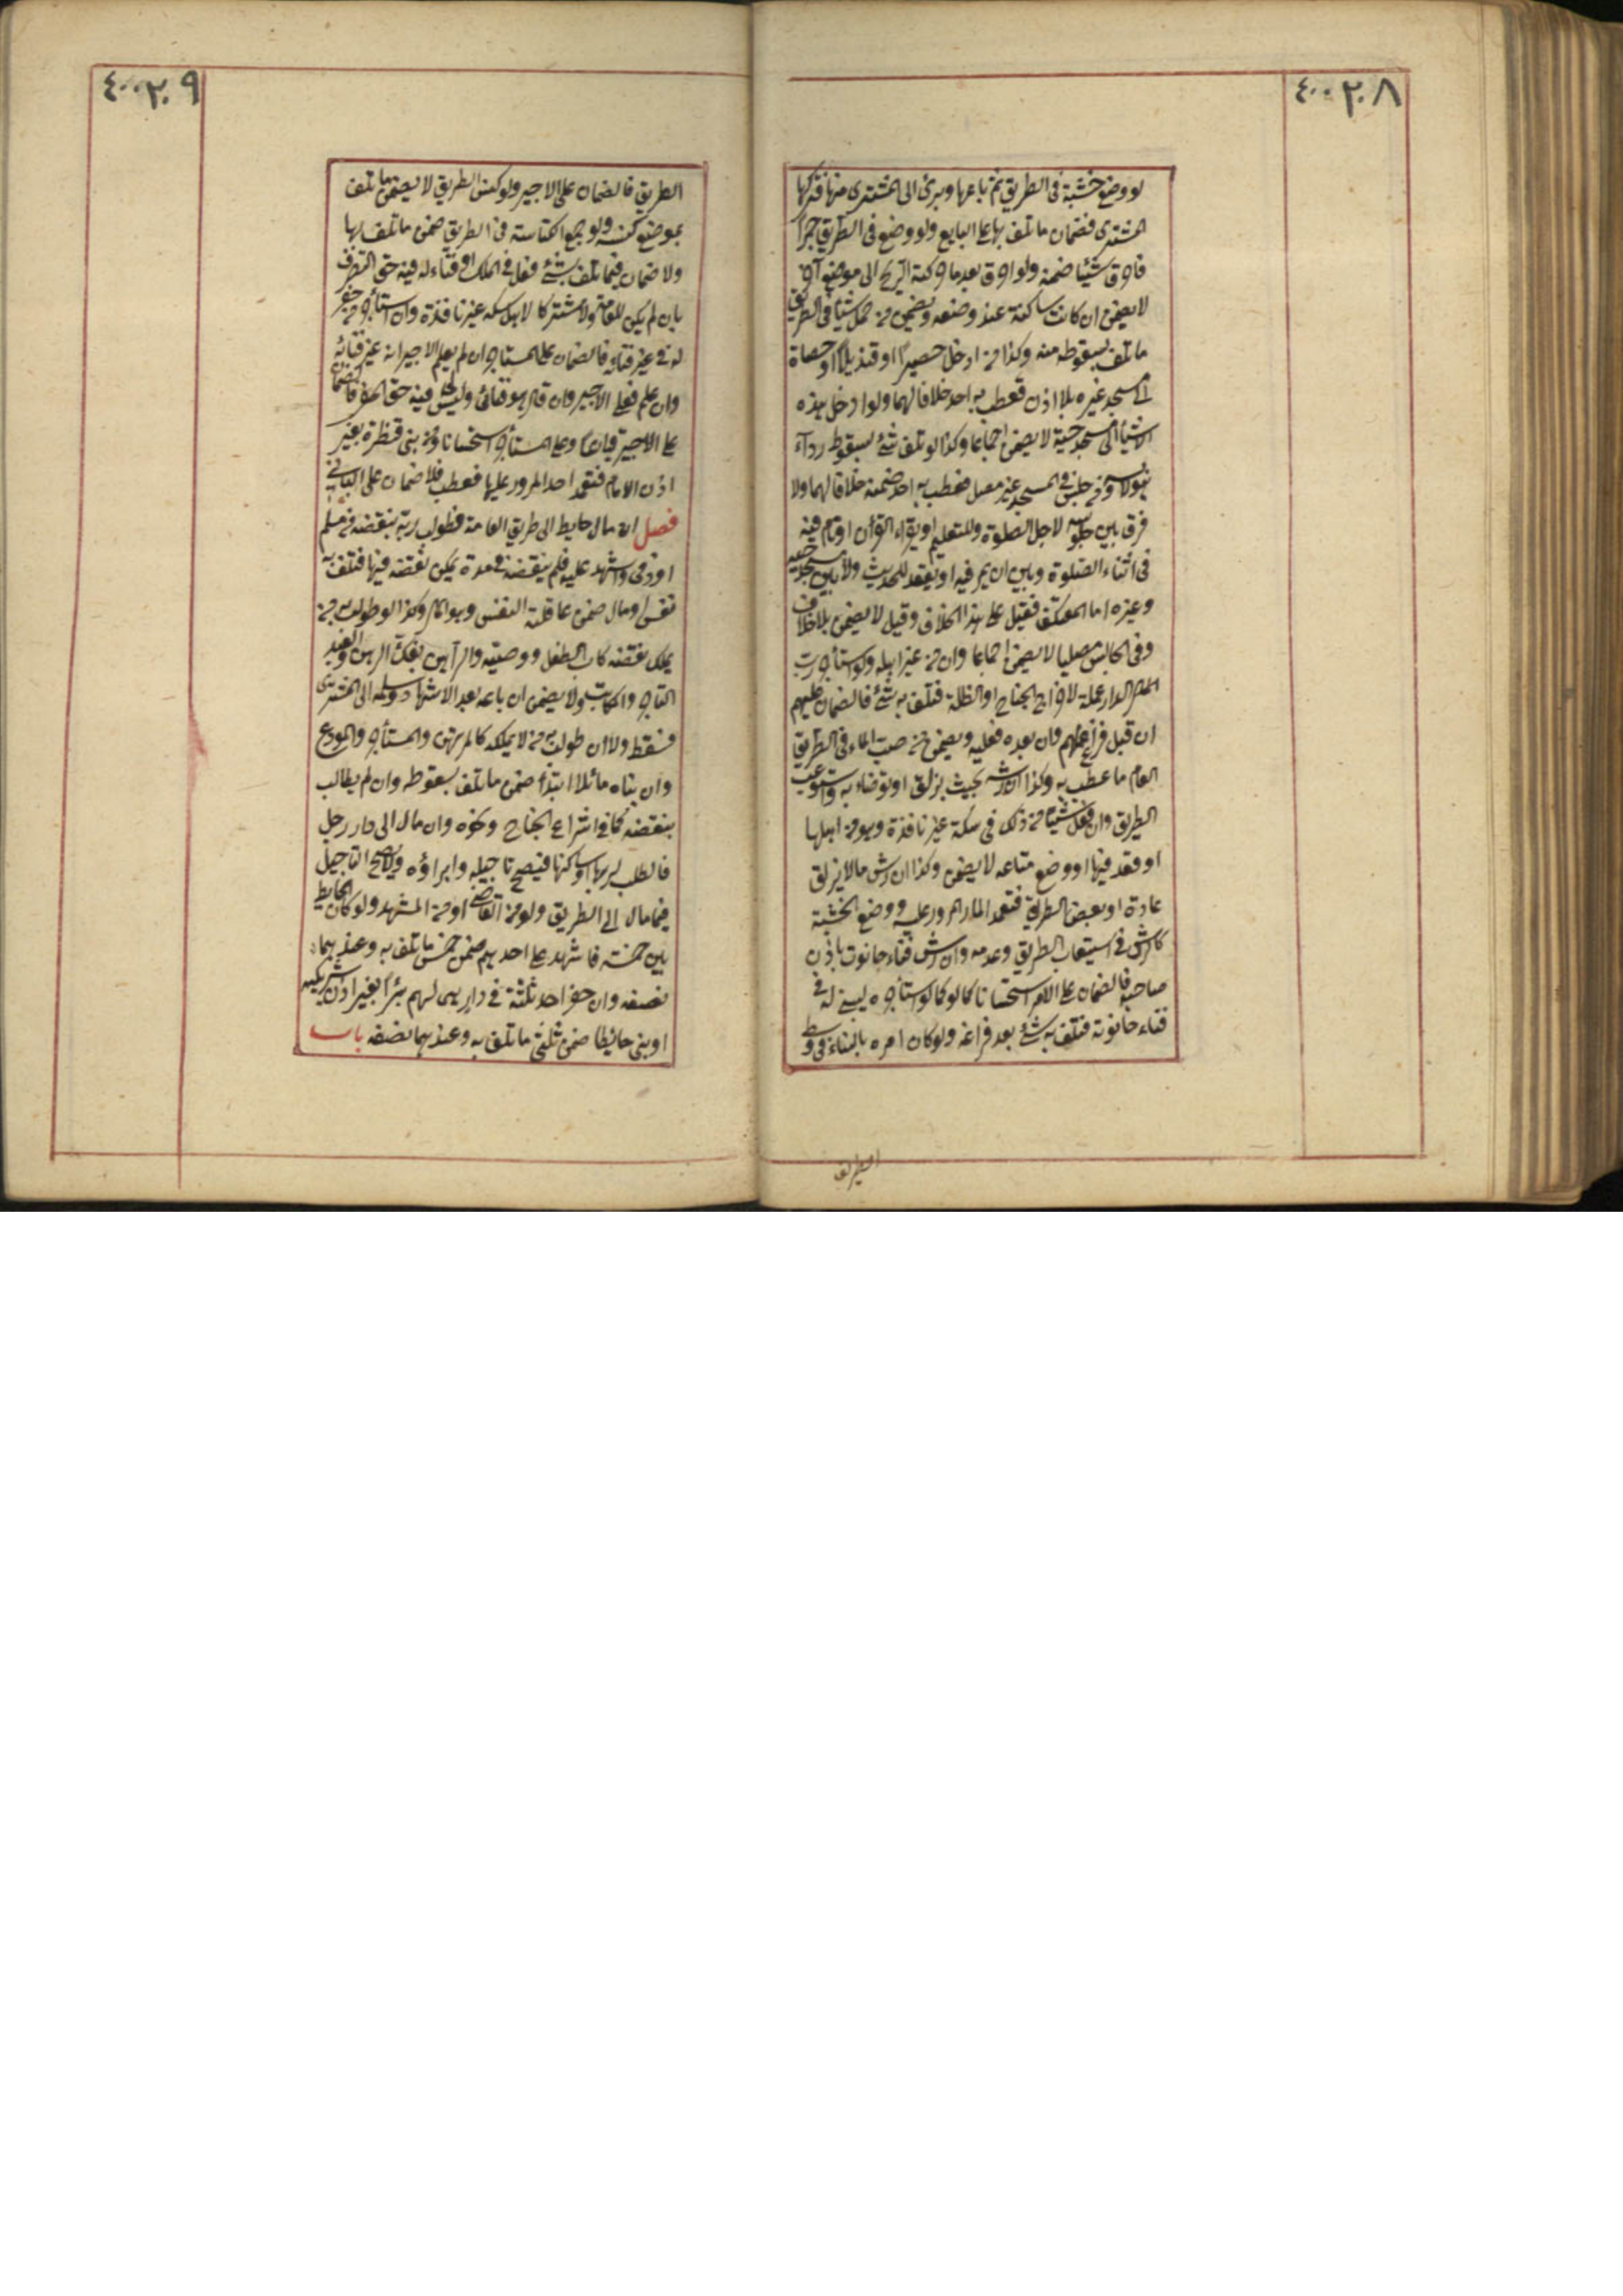 ٤٠٠٢٠٨
لو وضع خشبة فى الطريق ثم باعها وبرئ الى المشترى منها فتركها
المشترى فضمان ما تلف بها على البايع ولو وضع فى الطريق جمرا
فاحرق شيئا ضمنه ولو احرق بعد ما حركته الريح الى موضع آخر
لا يضمن ان كانت ساكنة عند وضعه ويضمن من حمل شيئا فى الطريق
ما تلف بسقوطه منه وكذا من ادخل حصيرا او قنديلا او حصاة
الى مسجد غيره بلا اذن فعطب به احد خلافا لهما ولو ادخل هذه
الاشياء الى مسجد حيه لا يضمن اجماعا وكذا لو تلف شئ بسقوط رداء
هو لابسه ومن جلس فى المسجد غير مصل فعطب به احد ضمنه خلافا لهما ولا
فرق بين جلوسه لاجل الصلوة وللتعليم او يقراء القرأن او نام فيه
فى اثناء الصلوة وبين ان يمر فيه او يقعد للحديث ولا بين مسجد حيه
وغيره اما المعتكف فقيل على هذا الخلاف وقيل لا يضمن بلا خلاف
وفى الجالس مصليا لا يضمن اجماعا وان من غير اهله ولو استأجر رب
الدار عملة لاخراج الجناح او الظلة فتلف به شئ فالضمان عليهم
ان قبل فراغ عملهم وان بعده فعليه ويضمن من صب الماء فى الطريق
العام ما عطب به وكذا ان رشه بحيث يزلق او توضاء به واستوعب
الطريق وان فعل شيئا من ذلك فى سكة غير نافذة وهو من اهلها
او قعد فيها او وضع متاعه لا يضمن وكذا ان رش ما لا يزلق
عادة او بعض الطريق فتعمد المار المرور عليه ووضع الخشبة
كالرش فى استيعاب الطريق وعدمه وان رش فناء حانوت باذن
صاحبه فالضمان على الآمر استحسانا كما لو استأجره ليبنى له فى
فناء حانوته فتلف به شئ بعد فراغه ولو كان امره بالبناء فى وسط
الطريق
٤٠٠٢٠٩
الطريق فالضمان على الاجير ولو كنس الطريق لا يضمن ما تلف
بموضع كنسه ولو جمع الكناسة فى الطريق ضمن ما تلف بها
ولا ضمان فيما تلف بشئ فعل فى الملك او فناء له فيه حق التصرف
بان لم يكن للعامة ولا مشتركا لاهل سكة غير نافذة وان استأجر من حفر
له فى غير فنائه فالضمان على المستأجر ان لم يعلم الاجير انه غير فنائه
وان علم فعلى الاجير وان قال هو فنائى وليس لى فيه حق الحفر فالضمان
على الاجير قياسا وعلى المستأجر استحسانا ومن بنى قنطرة بغير
اذن الامام فتعمد احد المرور عليها فعطب فلا ضمان على البانى
فصل ان مال حايط الى طريق العامة فطولب ربه بنقضه من مسلم
او ذمى واشهد عليه فلم ينقضه فى مدة يمكن نقضه فيها فتلف به
نفس او مال ضمن عاقلته النفس وهو المال وكذا لو طولب به من
يملك نقضه كاب الطفل ووصيه والراهن بفك الرهن والعبد
التاجر والمكاتب ولا يضمن ان باعه بعد الاشهاد وسلمه الى المشترى
فسقط ولا ان طولب به من لا يملكه كالمرتهن والمستأجر والمودع
وان بناه مائلا ابتداء ضمن ما تلف بسقوطه وان لم يطالب
بنقضه كما فى اشراع الجناح ونحوه وان مال الى دار رجل
فالطلب لربها او ساكنها فيصح تاجيله وابراؤه ولا يصح التاجيل
فيما مال الى الطريق ولو من القاضى او من المشهد ولو كان الحايط
بين خمسة فاشهد على احدهم ضمن خمس ما تلف به وعندهما
نصفه وان حفر احد ثلثة فى دار هى لهم بئرا بغير اذن شريكيه
او بنى حائطا ضمن ثلثى ما تلف به وعندهما نصفه باب